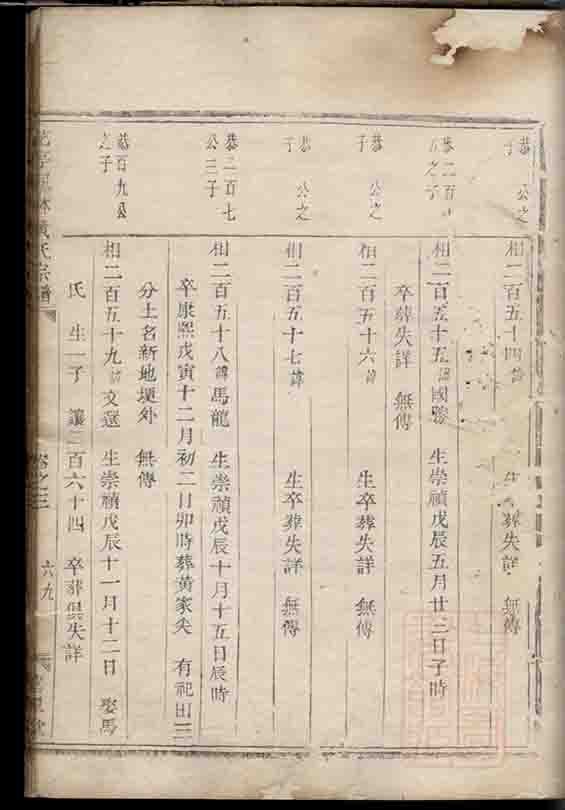 恭 公之
子
相二百五十四諱 生卒葬失詳 無傳
恭二百
五之子
相二百五十五諱國 生崇禎戊辰五月廿三日子時
卒葬失詳 無傳
恭 公之
子
相二百五十六諱 生卒葬失詳 無傳
恭 公之
子
相二百五十七諱 生卒葬失詳 無傳
恭二百七
公三子
相二百五十八諱馬龍 生崇禎戊辰十月十五日辰時
卒康熙戊寅十二月初二日卯時葬黃家尖 有祀田三
分土名新地埂外 無傳
恭百九公
之子
相二百五十九諱文選 生崇禎戊辰十一月十二日 娶馬
氏 生一子 讓二百六十四 卒葬俱失詳
林黃氏宗譜 卷之三 六九